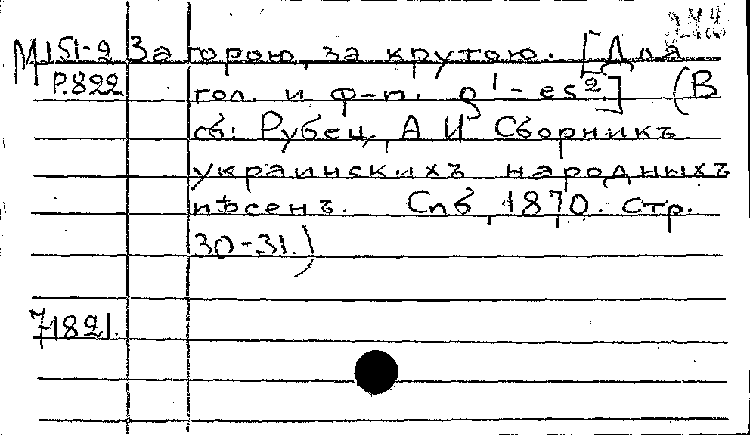 М 151-2 За горою, за крутою. [Для
Р.822 гол. и ф-п. g¹-es².] (В
сб: Рубец, А И Сборникъ
украинскихъ народныхъ
пѣсенъ. Спб, 1870. Стр.
30-31.)
71821.